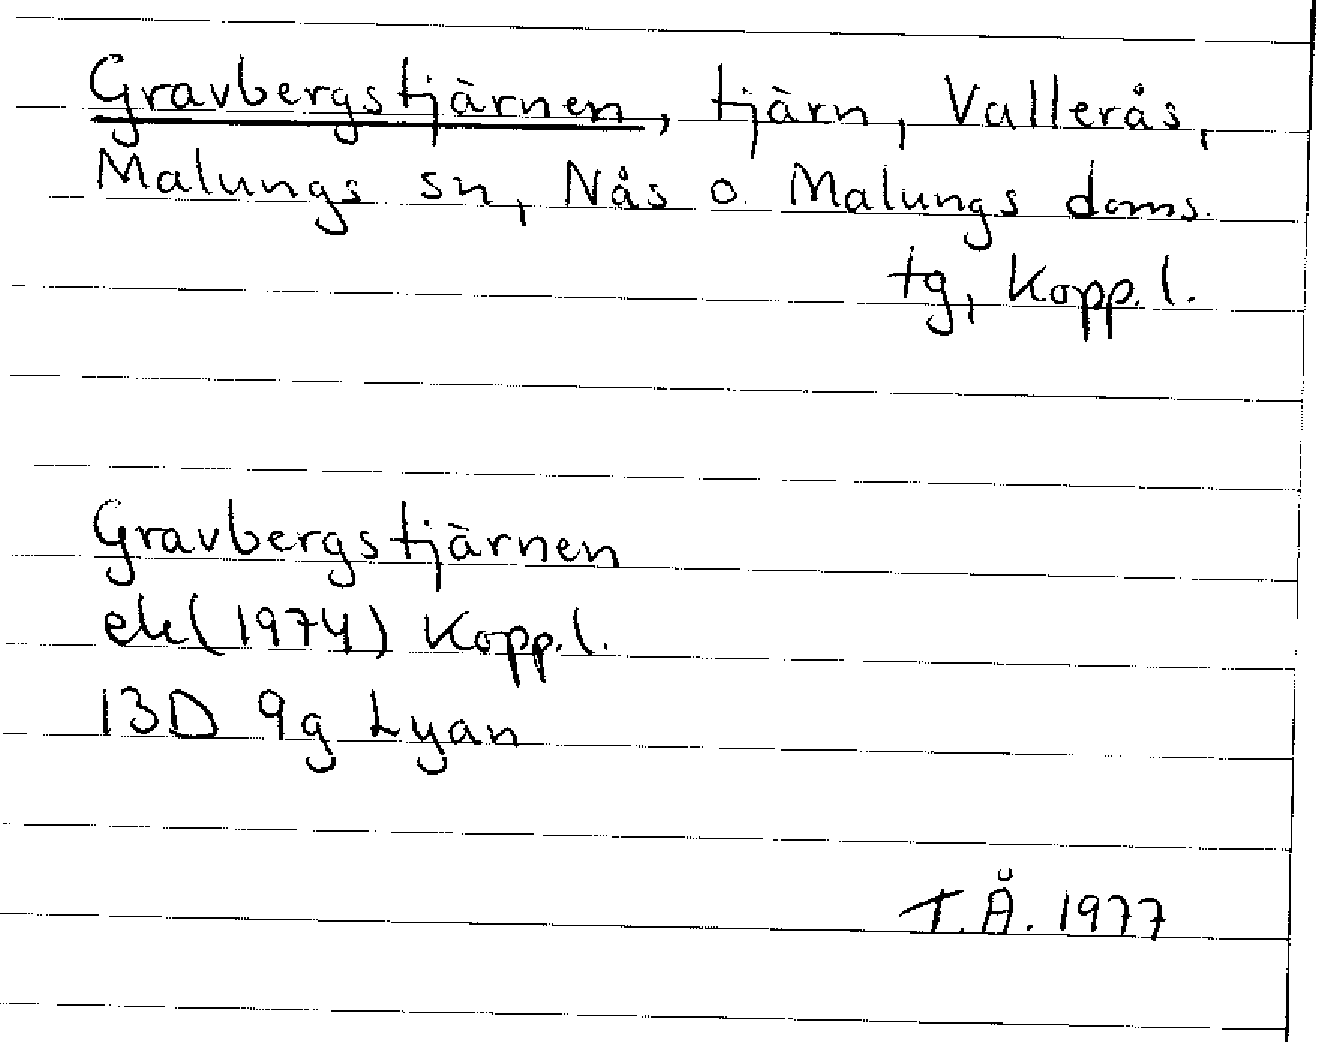 Gravbergstjärnen, tjärn, Vallerås,
Malungs sn, Nås o. Malungs doms.
tg, Kopp. l.
Gravbergstjärnen
ek (1974) Kopp. l.
13D 9g Lyan
T.Å. 1977